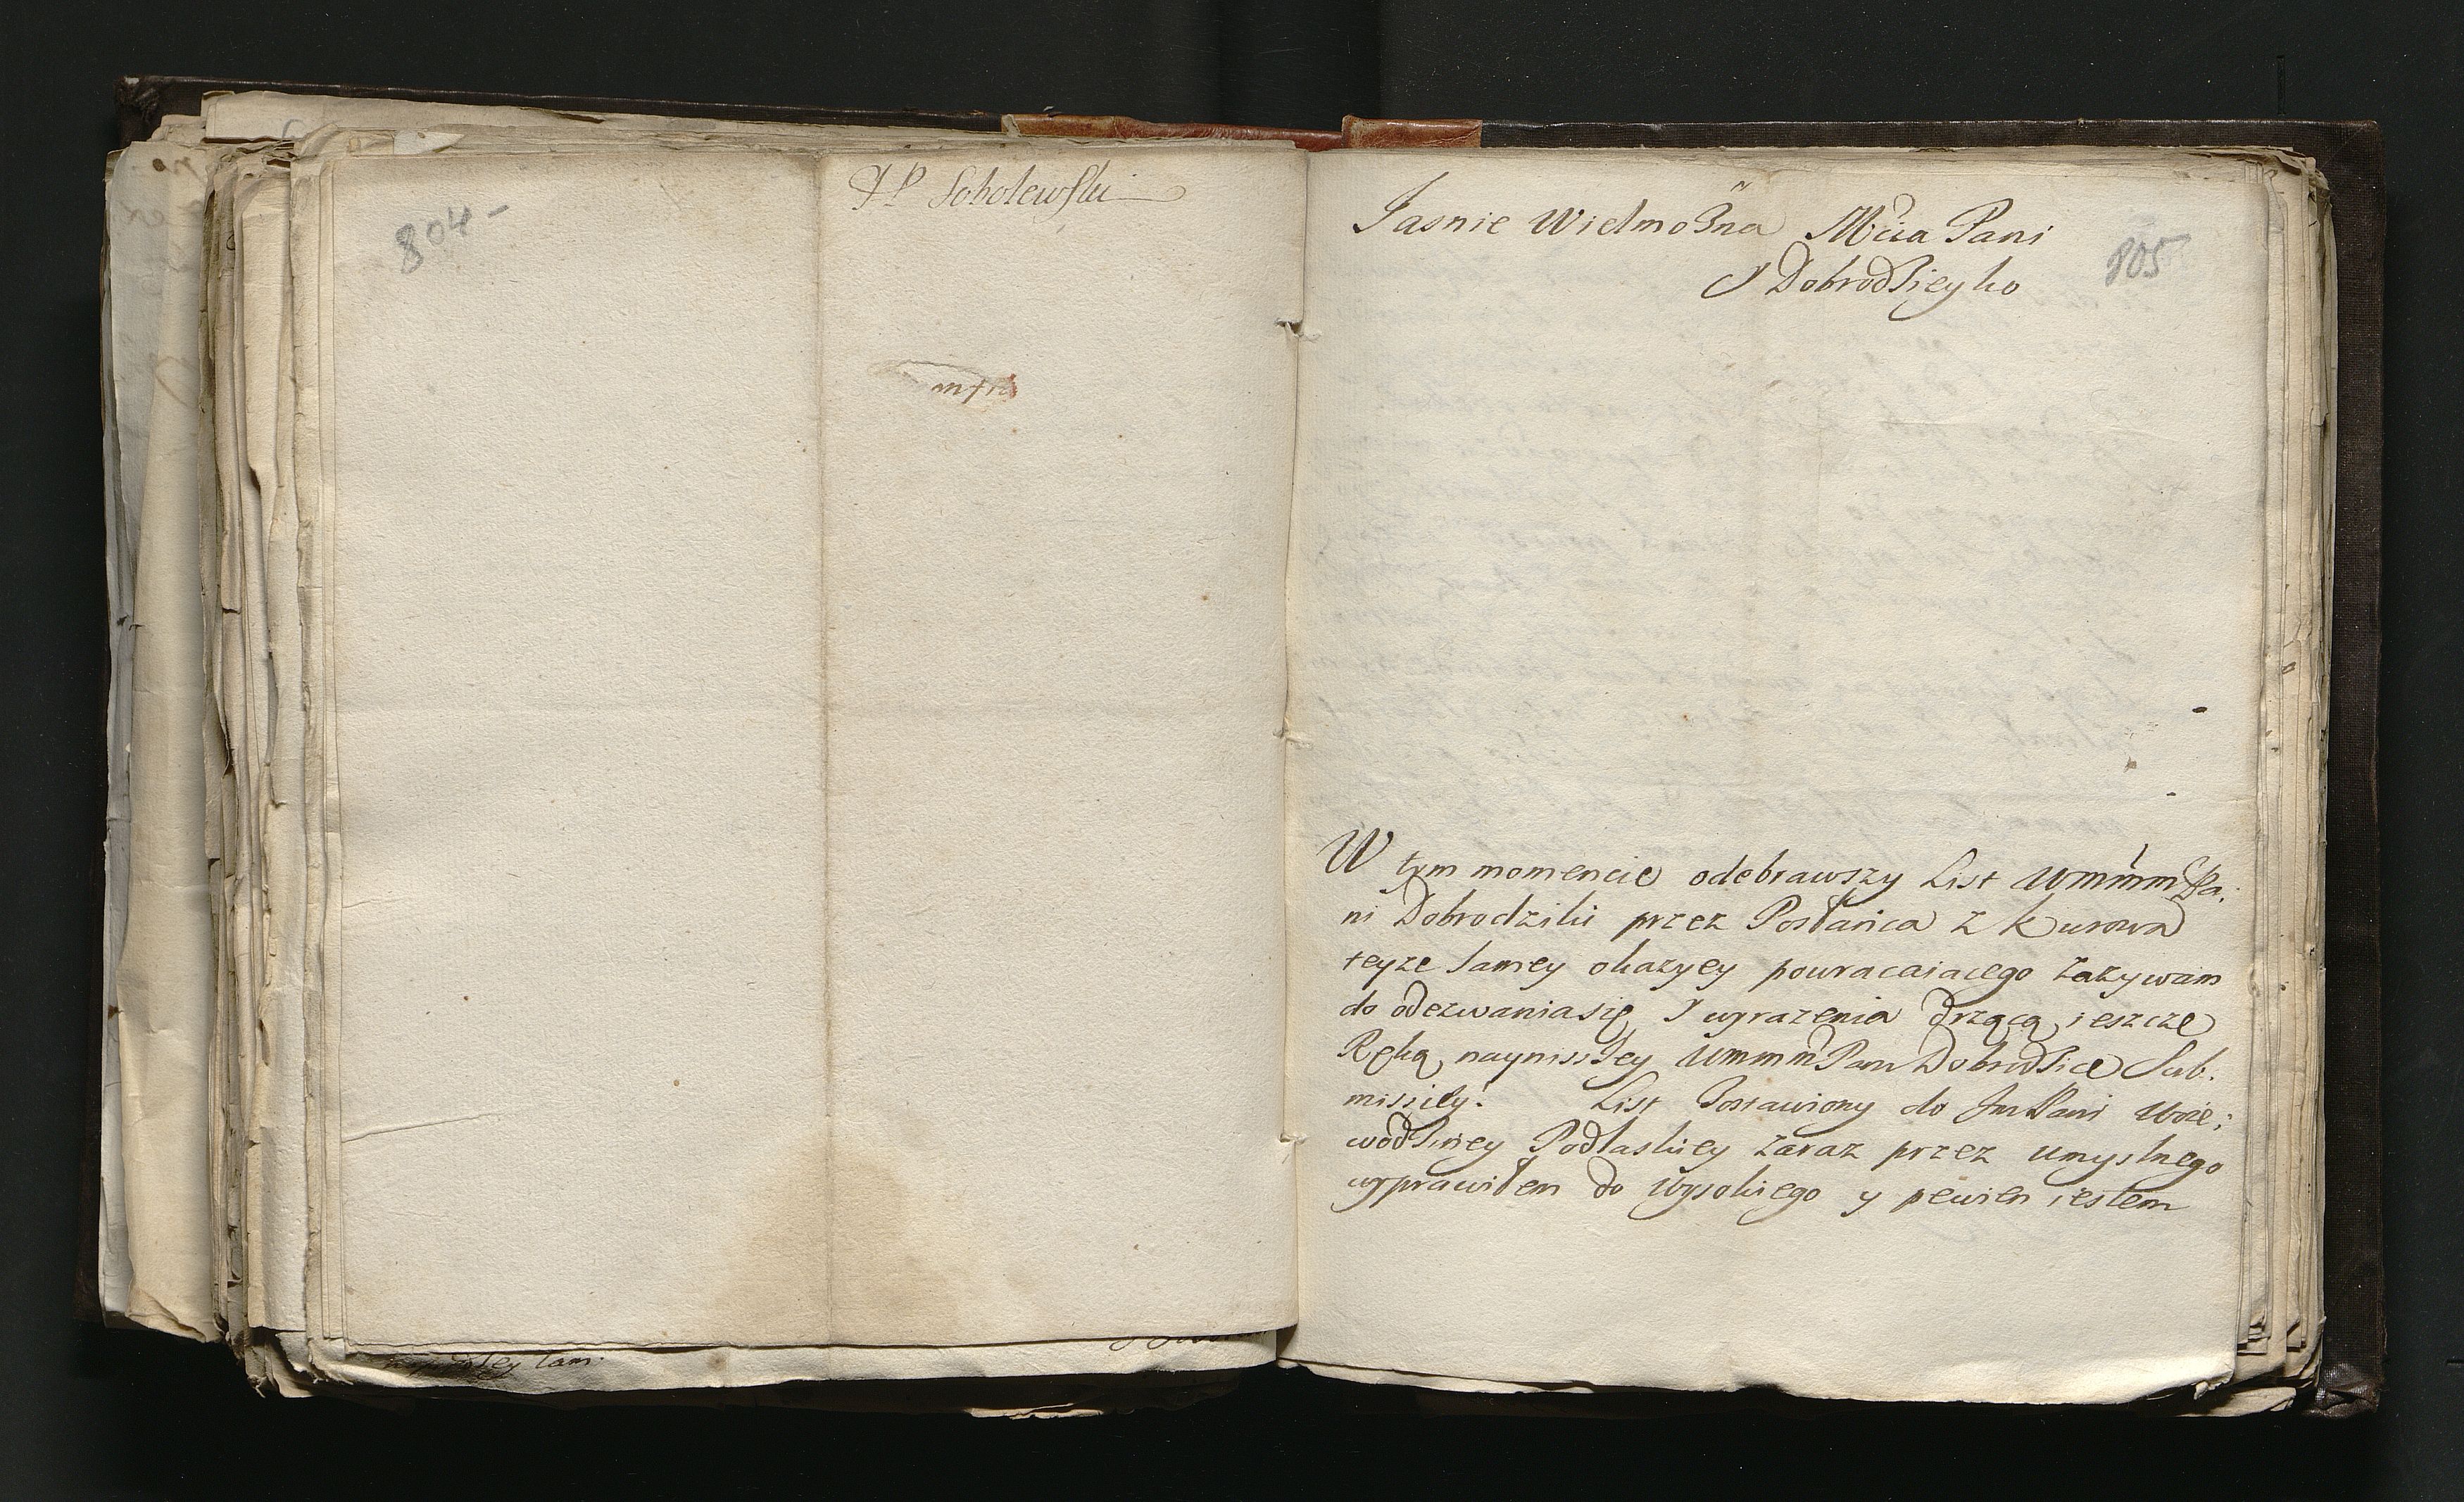 804-
JP Sobolewski
Jasnie Wielmożna Mcia Pani
J Dobrodzieyko
805
W tym momencie odebrawszy List Wmmm Pa:
ni Dobrodziki przez Posłańca z Kurowa
teyze samey okazyey powracaiacego zazywam
do odezwania się J wyrazenia drzącą ieszcze
Ręką nayniszszey Wmmm Pani Dobrodzice Sub:
missiey. List Zostawiony do Jm Pani Woie:
wodziney Podlaskiey zaraz przez umyslnego
wyprawiłem do Wysokiego y pewien iestem